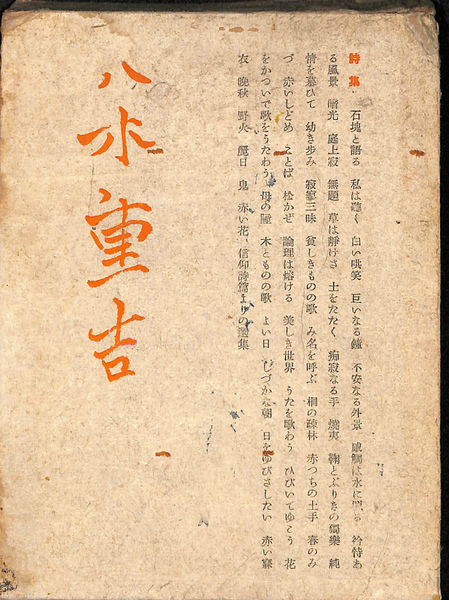 詩集 石塊と語る 私は聽く 白い哄笑 巨いなる鐘 不安なる外景 眼鏡は水に 矜恃あ
る風景 曙光 庭上寂 無題 草は靜けさ 土をたたく 痴寂なる手 燒夷 鞠とぶりきの獨樂 純
情を慕ひて 幼き歩み 寂寥三昧 貧しきものの歌 み名を呼ぶ 桐の疎林 赤つちの土手 春のみ
づ 赤いしどめ ことば 松かぜ 論理は熔ける 美しき世界 うたを歌わう ひびいてゆこう 花
をかついで歌をうたわう 母の瞳 木とものの歌 よい日 しづかな朝 日をゆびさしたい 赤い寢
衣 晩秋 野火 麗日 鬼 赤い花 信仰詩篇よりの選集
八木重吉